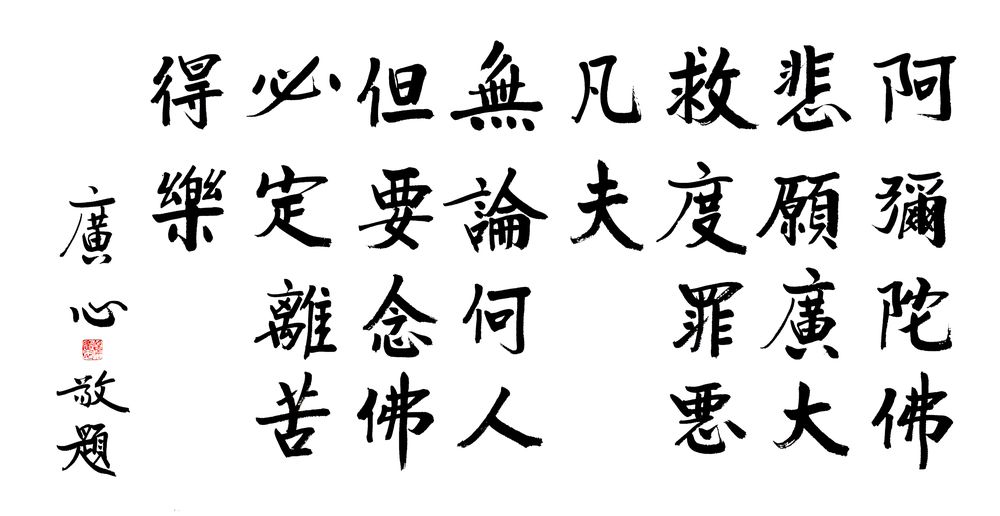 阿彌陀佛
悲願廣大
救度罪惡
凡夫
無論何人
但要念佛
必定離苦
得樂
廣心敬題